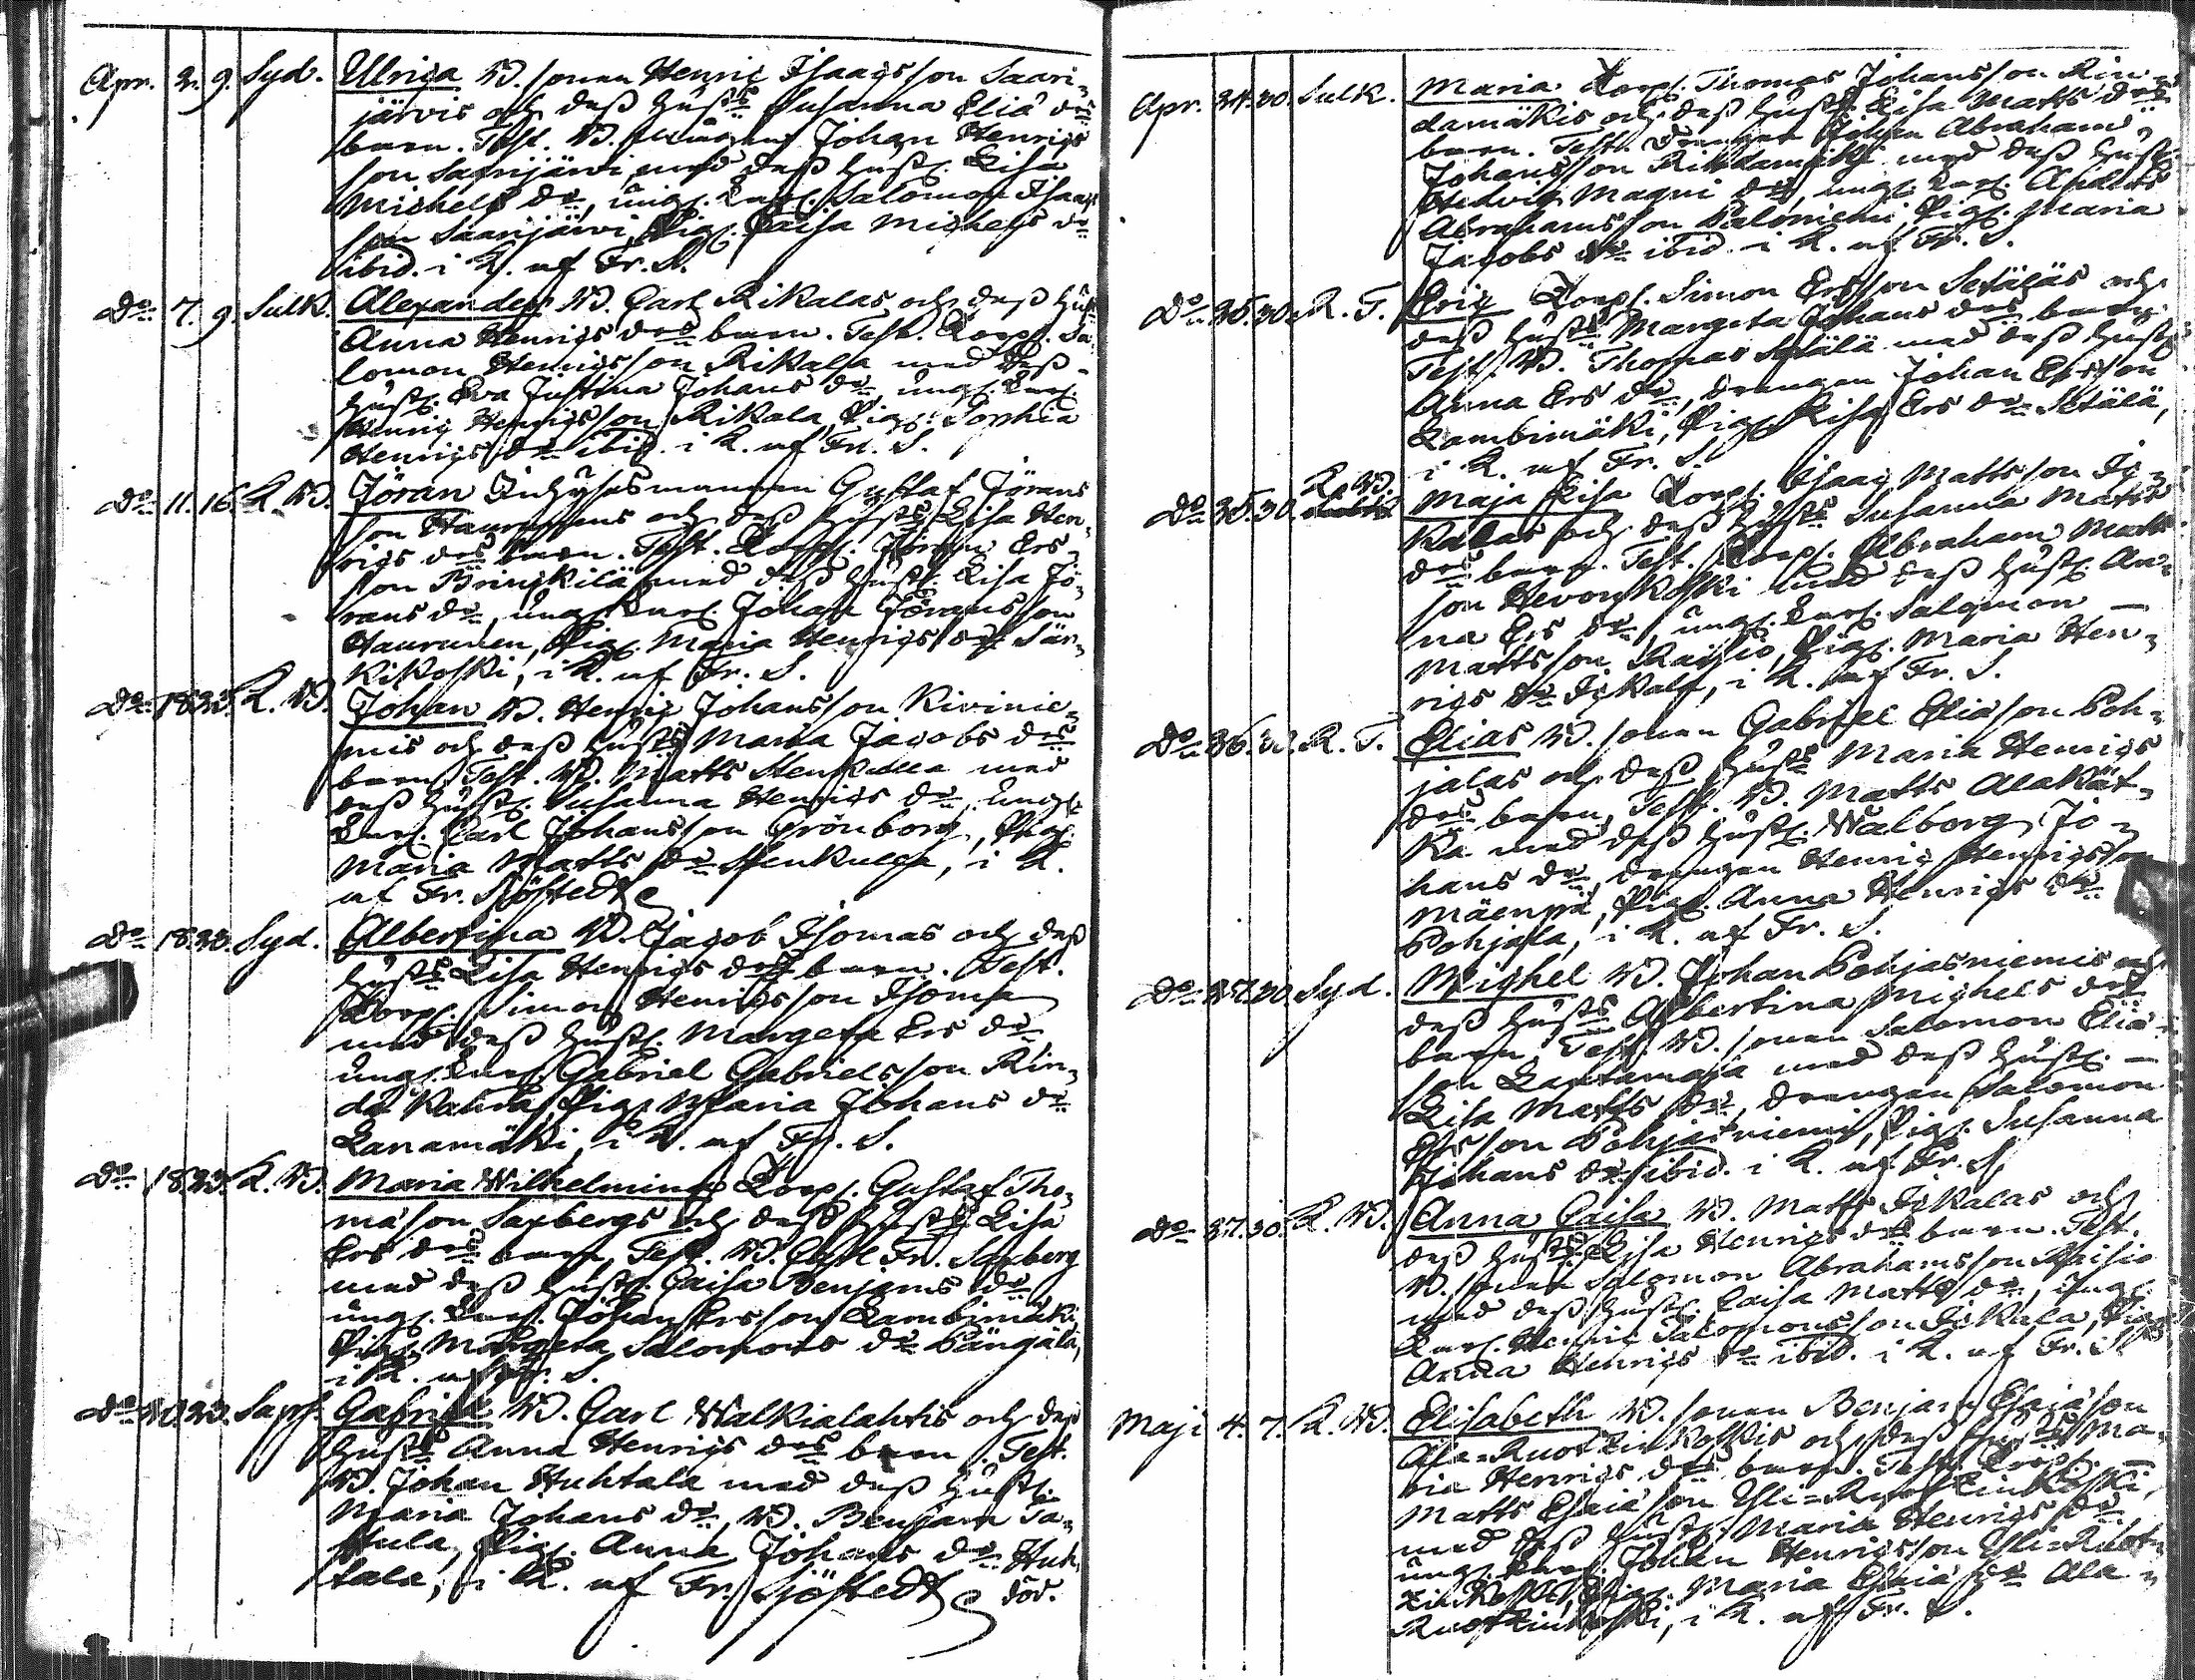 Apr. 2. 9. Syd. Ulrica W. sonen Henric Isaacsson Saari-
järvis och dess hust:s Susanna Eliæ d:rs
barn. Test. W. Johan Henrics
son Saarijärvi med dess hust. Lisa
Michels d:r, ung. Karl. Salomon Isaacs
son Saarijärvi, Pig. Caisa Michels d:r
ibid. i K. af Fr. S.
D:o 7. 9. Sulk. Alexander W. Carl Rikalas och dess hust:s
Anna Henrics d:rs barn. Test. Torp. Sa-
lomon Henricsson Rikala med dess
hust. Eva Justina Johans d:r, ung. Karl.
Henric Henricsson Rikala, Pig. Sophia
Henrics d:r ibid. i K. af Fr. S.
D:o 11. 16. K. W. Jöran Inhysesmannen Gustaf Jörans
son Haurunens och dess hust:s Lisa Hen-
rics d:rs barn. Test. Torp. Jöran Ers-
son Brinckilä med dess hust. Lisa Jö-
rans d:r, ung. Karl. Johan Jöransson
Haurunen, Pig. Maria Henrics d:r Sär-
kikoski, i K. af Fr. S.
D:o 18. 23. K. W. Johan W. Henric Johansson Kivinie-
mis och dess hust:s Maria Jacobs d:rs
barn, Test. W. Matts Stenkulla med
dess hust. Susanna Henrics d:r, ung.
Karl. Carl Johansson Grönborg, Pig.
Maria Matts d:r Stenkulla, i K.
af Fr. Sjöstedt
D:o 18. 23. Syd. Albertina W. Jacob Isomas och dess
hust:s Lisa Henrics d:rs barn. Test.
Torp. Simon Henricsson Isoma
med dess hust. Margeta Ers d:r,
ung. Karl. Gabriel Gabrielsson Rin-
da Kahra, Pig. Maria Johans d:r
Lanamäki, i K. af Fr. S.
D:o 18. 23. K. W. Maria Wilhelmina Torp. Gustaf Tho-
mæson Saxbergs och dess hust:s Lisa
Ers d:rs barn, Test. W. Carl Fr. Saxberg
med dess hust. Caisa Benjams d:r
ung. Karl. Johan Ersson Lambimäki,
Pig. Margeta Salomons d:r Pängälä,
i K. af Fr. S.
D:o 20. 23. Saps. Gabriel W. Carl Walkialahtis och dess
hust:s Anna Henrics d:rs barn. Test.
W. Johan Huhtala med dess hust.
Maria Johans d:r, W. Benjam Ta-
stula, Pig. Anna Johans d:r Huh-
tala, i K. af Fr. Sjöstedt död.
Apr. 24. 30. Sulk. Maria Torp. Thomas Johansson Rin-
damäkis och dess hust:s Lisa Matts d:rs
barn. Test. Drengen Johan Abraham
Johansson Rindamäki med dess hust.
Hedvig Magni d:r, ung. Karl. Anders
Abrahamsson Paloniemi, Pig. Maria
Jacobs d:r ibid. i K. af Fr. S.
D:o 25. 30. K. T. Eric Torp. Simon Ersson Setäläs och
dess hust:s Margeta Johans d:rs barn
Test. W. Thomas Setälä med dess hust.
Anna Ers d:r, drengen Johan Ersson
Lambimäki, Pig. Lisa Ers d:r Setälä,
i K. af Fr. S.
D:o 25. 30. K. W. Maja Lisa Torp. Isaac Mattsson Ic-
kalas och dess hust:s Susanna Matts
d:rs barn. Test. Torp. Abraham Matts
son Hevonkoski med dess hust. An-
na Ers d:r, ung. Karl. Salomon
Mattsson Raisio, Pig. Maria Hen-
rics d:r Ickala, i K. af Fr. S.
D:o 26. 30. K. T. Elias W. sonen Gabriel Eliæson Poh-
jalas och dess hust:s Maria Henrics
d:rs barn, Test. W. Matts Alakät-
kä med dess hust. Walborg Jo-
hans d:r, drengen Henric Henricsson
Mäenpä, Pig. Anna Henrics d:r
Pohjala, i K. af Fr. S.
D:o 27. 30. Syd. Michel W. Johan Pohjasniemis och
dess hust:s Albertina Michels d:rs
barn, Test. W. sonen Salomon Eliæ-
son Lantamaja med dess hust.
Lisa Matts d:r, drengen Salomon
Ersson Pohjasniemi, Pig. Susanna
Johans d:r ibid. i K. af Fr. S.
D:o 27. 30. K. W. Anna Caisa W. Matts Ickalas och
dess hust:s Lisa Henrics d:rs barn. Test.
W. sonen Salomon Abrahamsson Raisio
med dess hust. Caisa Matts d:r, ung.
Karl. Henric Salomonsson Ickala, Pig.
Anna Henrics d:r ibid. i K. af Fr. S.
Maji 4. 7. K. W. Elisabeth W. sonen Benjam Esaiæson
Ala-Ruotzinkoskis och dess hust:s Ma-
ria Henrics d:rs barn. Test. Torp.
Matts Esaiæson Yli-Ruotzinkoski,
med dess hust. Maria Henrics d:r
ung. Karl. Johan Henricsson Yli-Ruot-
zinkoski, Pig. Maria Esaiæ d:r Ala-
Ruotzinkoski, i K. af Fr. S.